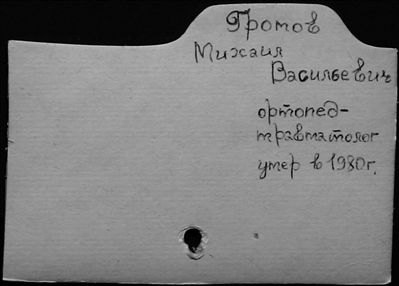 Громов
Михаил
Васильевич
ортопед-
травматолог
умер в 1980г.